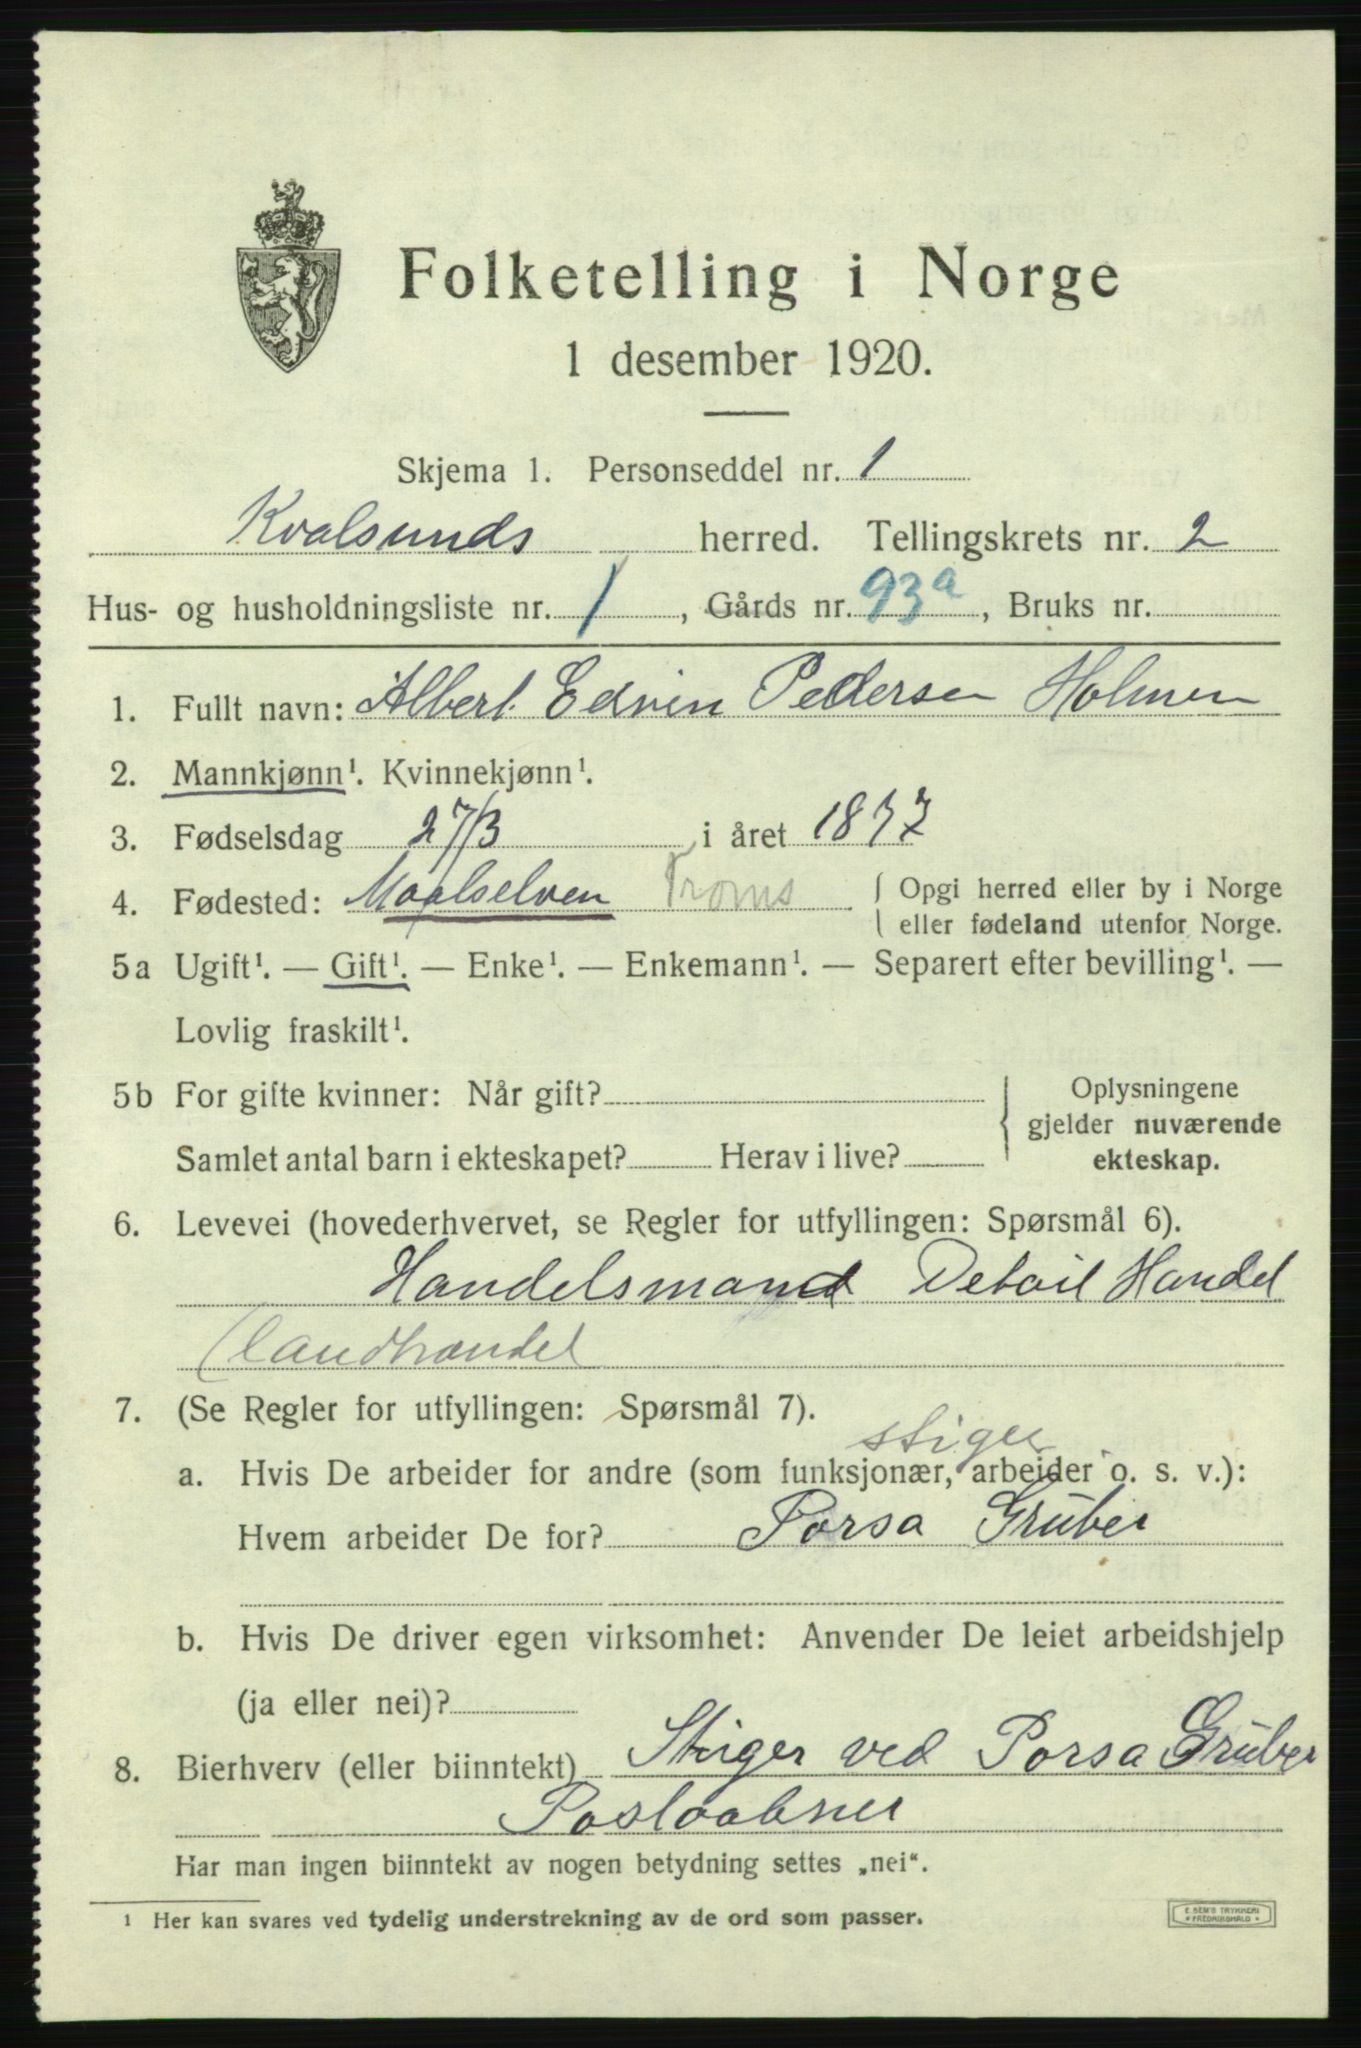 Folketelling i Norge
1 desember 1920.
Skjema 1. Personseddel nr. 1
Kvalsunds herred. Tellingskrets nr. 2
Hus- og husholdningsliste nr. 1, Gårds nr. 93a, Bruks nr.
1. Fullt navn: Albert Edvin Pedersen Holmen
2. Mannkjønn¹. Kvinnekjønn¹.
3. Fødselsdag 27/3 i året 1877
4. Fødested: Maalselven Troms { Opgi herred eller by i Norge
eller fødeland utenfor Norge.
5a Ugift¹. — Gift¹. — Enke¹. — Enkemann¹. — Separert efter bevilling¹. —
Lovlig fraskilt¹.
5b For gifte kvinner: Når gift? Oplysningene
gjelder nuværende
Samlet antal barn i ekteskapet? Herav i live? ekteskap.
6. Levevei (hovederhvervet, se Regler for utfyllingen: Spørsmål 6).
Handelsmand Detail Handel
(landhandel
7. (Se Regler for utfyllingen: Spørsmål 7).
stiger
a. Hvis De arbeider for andre (som funksjonær, arbeider o. s. v.):
Hvem arbeider De for? Porsa Grüber
b. Hvis De driver egen virksomhet: Anvender De leiet arbeidshjelp
(ja eller nei)?
8. Bierhverv (eller biinntekt) Stiger ved Porsa Grüber
Postaabner
Har man ingen biinntekt av nogen betydning settes „nei“.
¹ Her kan svares ved tydelig understrekning av de ord som passer.
E. SEM'S TRYKKERI
FREDRIKSHALD